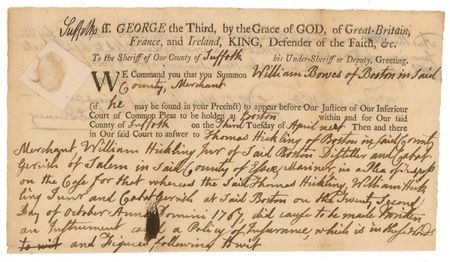 Suffolk ss. GEORGE the Third, by the Grace of GOD, of Great-Britain,
France, and Ireland, KING, Defender of the Faith, &c.
To the Sheriff of Our County of Suffolk his Under-Sheriff or Deputy, Greeting.
WE Command you that you Summon William Bowes of Boston in said
County, Merchant
(if he may be found in your Precinct) to appear before Our Justices of Our Inferiour
Court of Common Pleas to be holden at Boston within and for Our said
County of Suffolk on the Third Tuesday of April next Then and there
in Our said Court to answer to Thomas Hickling of Boston in said County
Merchant, William Hickling Junr of said Boston Distiller and Cabot
Gerish of Salem in said County of Essex, Mariner in a Plea of Trespass
on the Case for that whereas the said Thomas Hickling, William Hick
ling Junr and Cabot Gerrish at said Boston on the Twenty Second
Day of October Anno Domini 1767, did cause to be made & written
an Instrument a Policy of Insurance, which is in these Words
and Figures following to wit